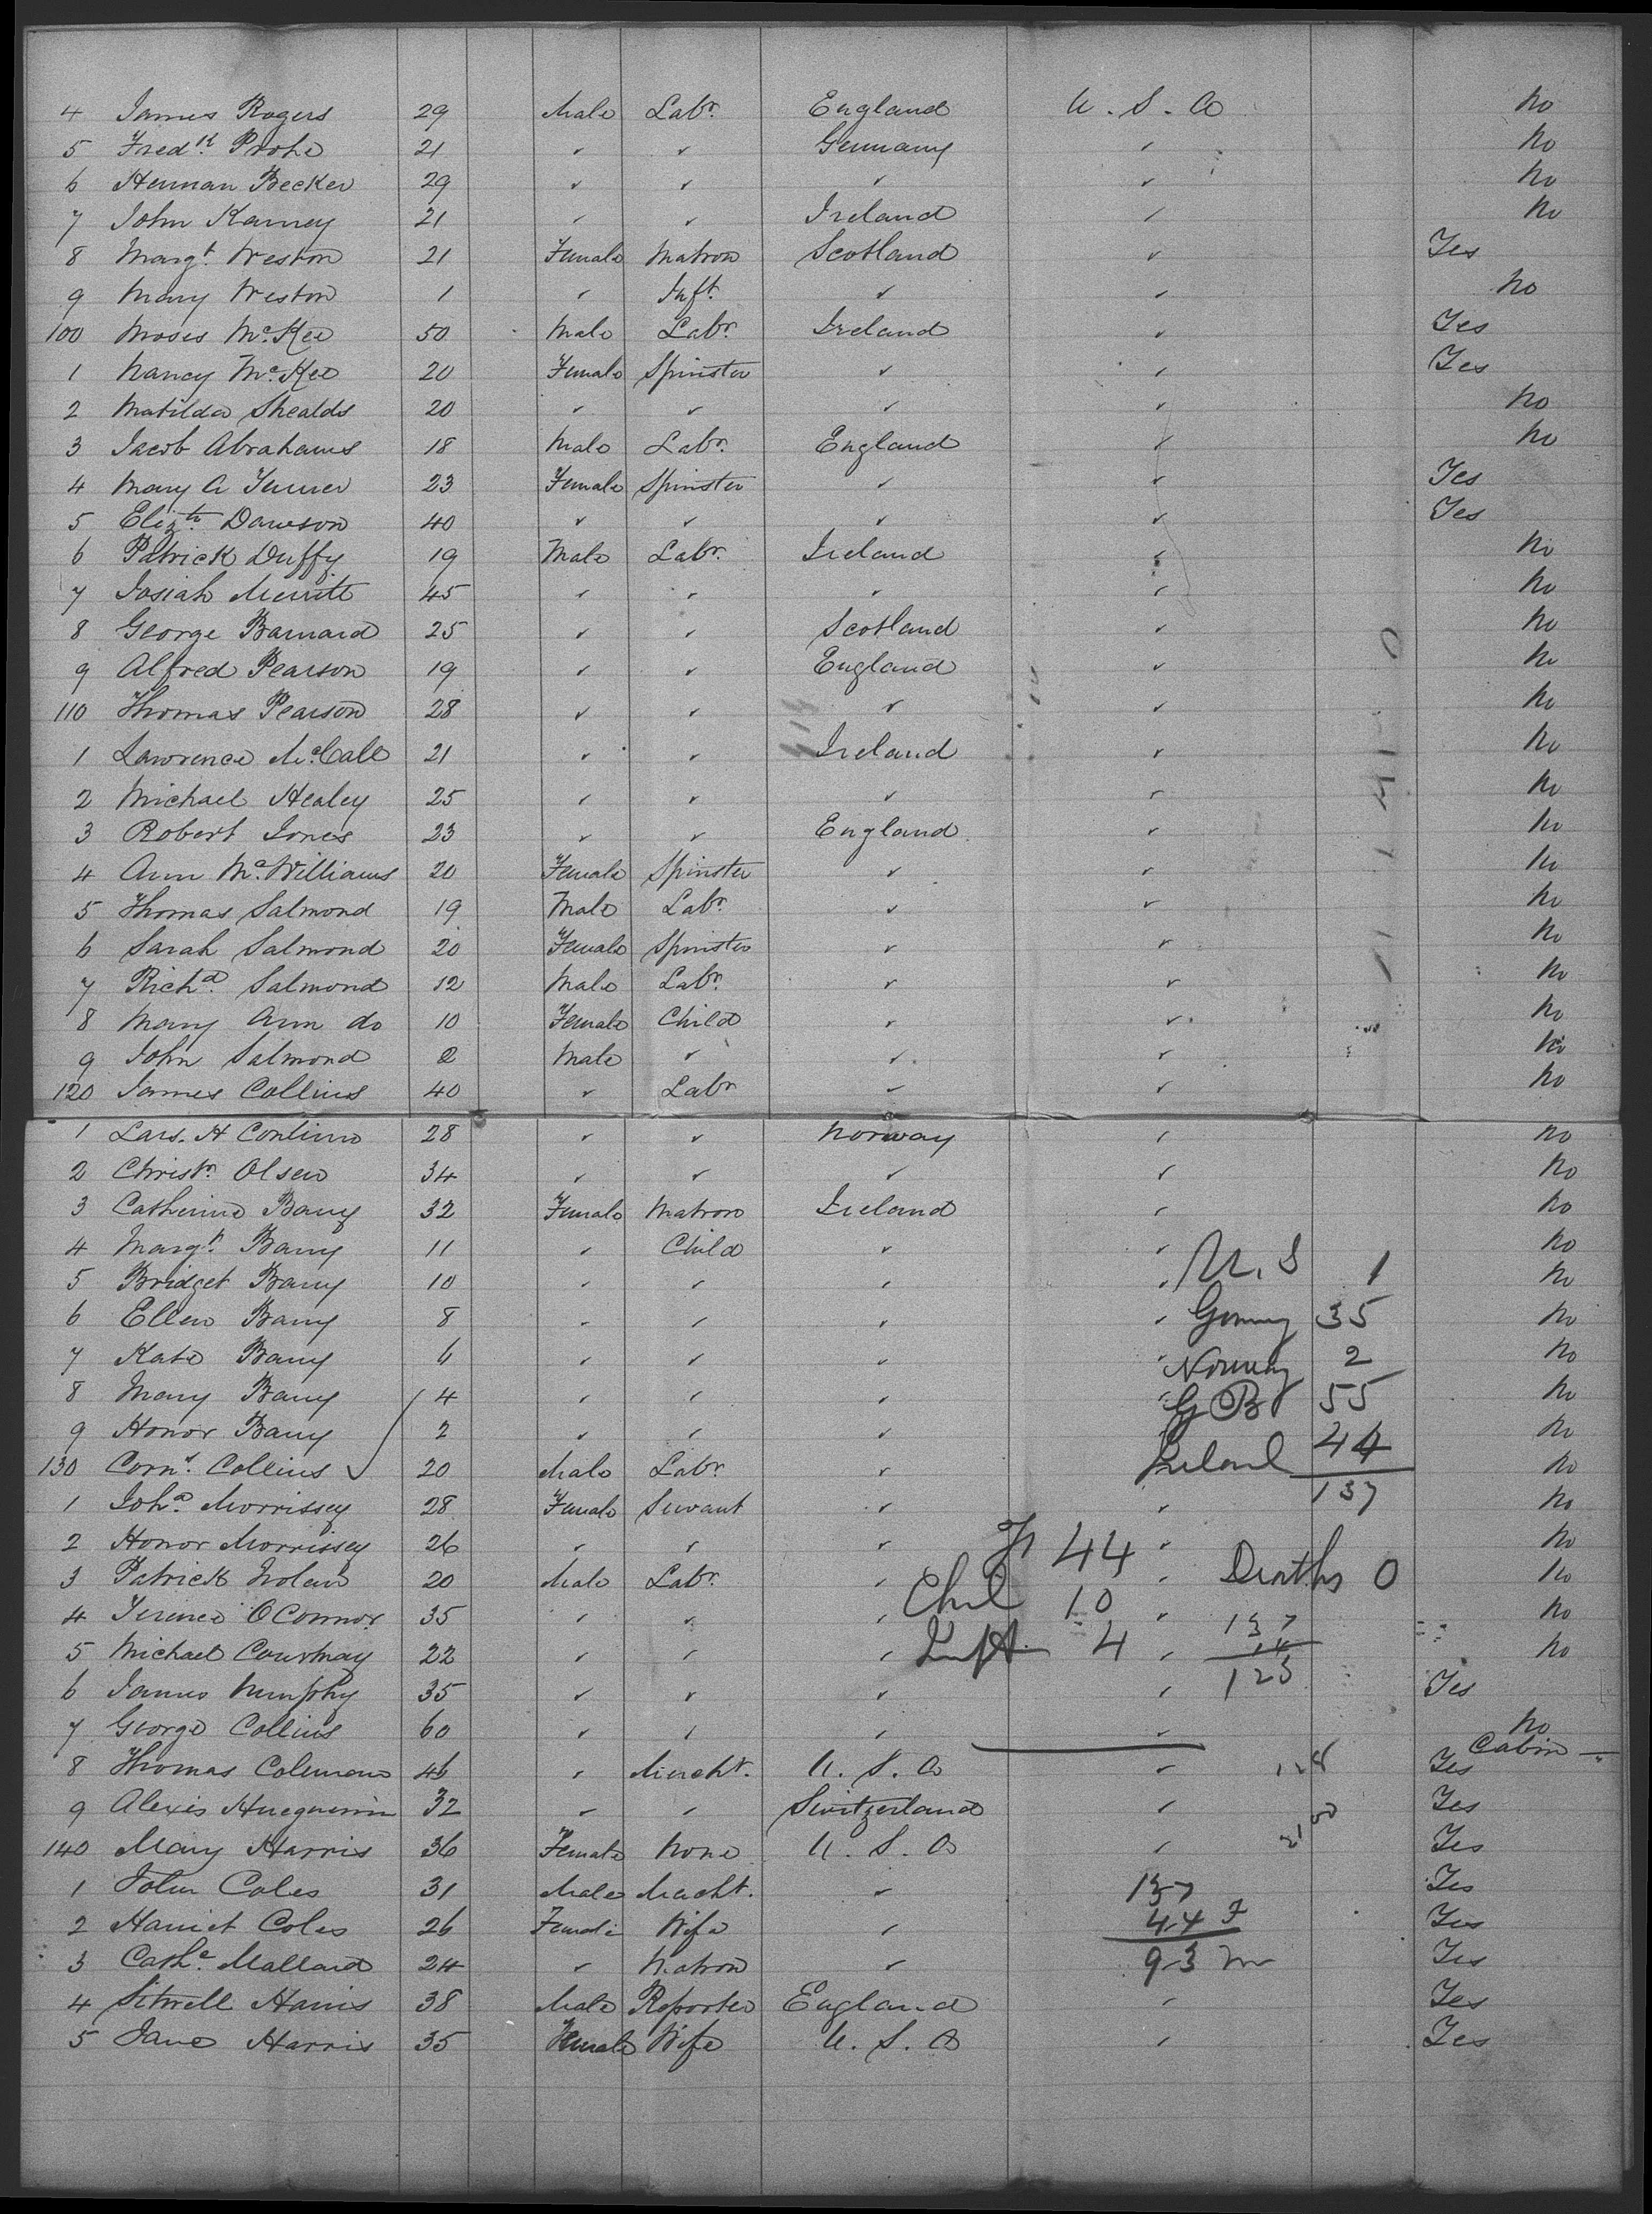 4 James Rogers 29 Male Labr. England U. S. A No
5 Fredk. Prohe 21 " " Germany " No
6 Herman Becker 29 " " " " No
7 John Karney 21 " " Ireland " No
8 Margt. Weston 21 Female Matron Scotland " Yes
9 Mary Weston 1 " Inft. " " No
100 Moses McKee 50 Male Labr. Ireland " Yes
1 Nancy McKee 20 Female Spinster " " Yes
2 Matilda Shealds 20 " " " " No
3 Jacob Abrahams 18 Male Labr. England " No
4 Mary A Turner 23 Female Spinster " " Yes
5 Elizth. Dawson 40 " " " " Yes
6 Patrick Duffy 19 Male Labr. Ireland " No
7 Josiah Merritt 45 " " " " No
8 George Barnard 25 " " Scotland " No
9 Alfred Pearson 19 " " England " No
110 Thomas Pearson 28 " " " " No
1 Lawrence McCall 21 " " Ireland " No
2 Michael Healey 25 " " " " No
3 Robert Jones 23 " " England " No
4 Ann McWilliams 20 Female Spinster " " No
5 Thomas Salmond 19 Male Labr. " " No
6 Sarah Salmond 20 Female Spinster " " No
7 Richd. Salmond 12 Male Labr. " " No
8 Mary Ann do 10 Female Child " " No
9 John Salmond 2 Male " " " No
120 James Collins 40 " Labr " " No
1 Lars. H 28 " " Norway " No
2 Christn. Olsen 34 " " " " No
3 Catherine Barry 32 Female Matron Ireland " No
4 Margt. Barry 11 " Child " " No
5 Bridget Barry 10 " " " " U. S 1 No
6 Ellen Barry 8 " " " " Germy 35 No
7 Kate Barry 6 " " " " Norway 2 No
8 Mary Barry 4 " " " " G B 55 No
9 Honor Barry 2 " " " Ireland 44 No
130 Corns. Collins 20 Male Labr. " No
1 Joha. Morrissey 28 Female Servant " " 137 No
2 Honor Morrissey 26 " " " Fs 44 " No
3 Patrick Nolan 20 Male Labr. " " Deaths 0 No
4 Terence OConnor 35 " " " Chil 10 " 137 No
5 Michael Courtnay 22 " " " Inft 4 " 14 No
6 James Murphy 35 " " " " 123 Yes
7 George Collins 60 " " " " No
Cabin
8 Thomas Coleman 46 " Mercht. U. S. A " 128 Yes
9 Alexis Huguenin 32 " " Switzerland " Yes
140 Mary Harris 36 Female None U. S. A " Yes
1 John Coles 31 Male Mercht. " 137 Yes
2 Harriet Coles 26 Female Wife " 44 F Yes
3 Cathe. Mallard 24 " Matron " 93 m Yes
4 Sitwell Harris 38 Male Reporter England " Yes
5 Jane Harris 35 Female Wife U. S. A " Yes